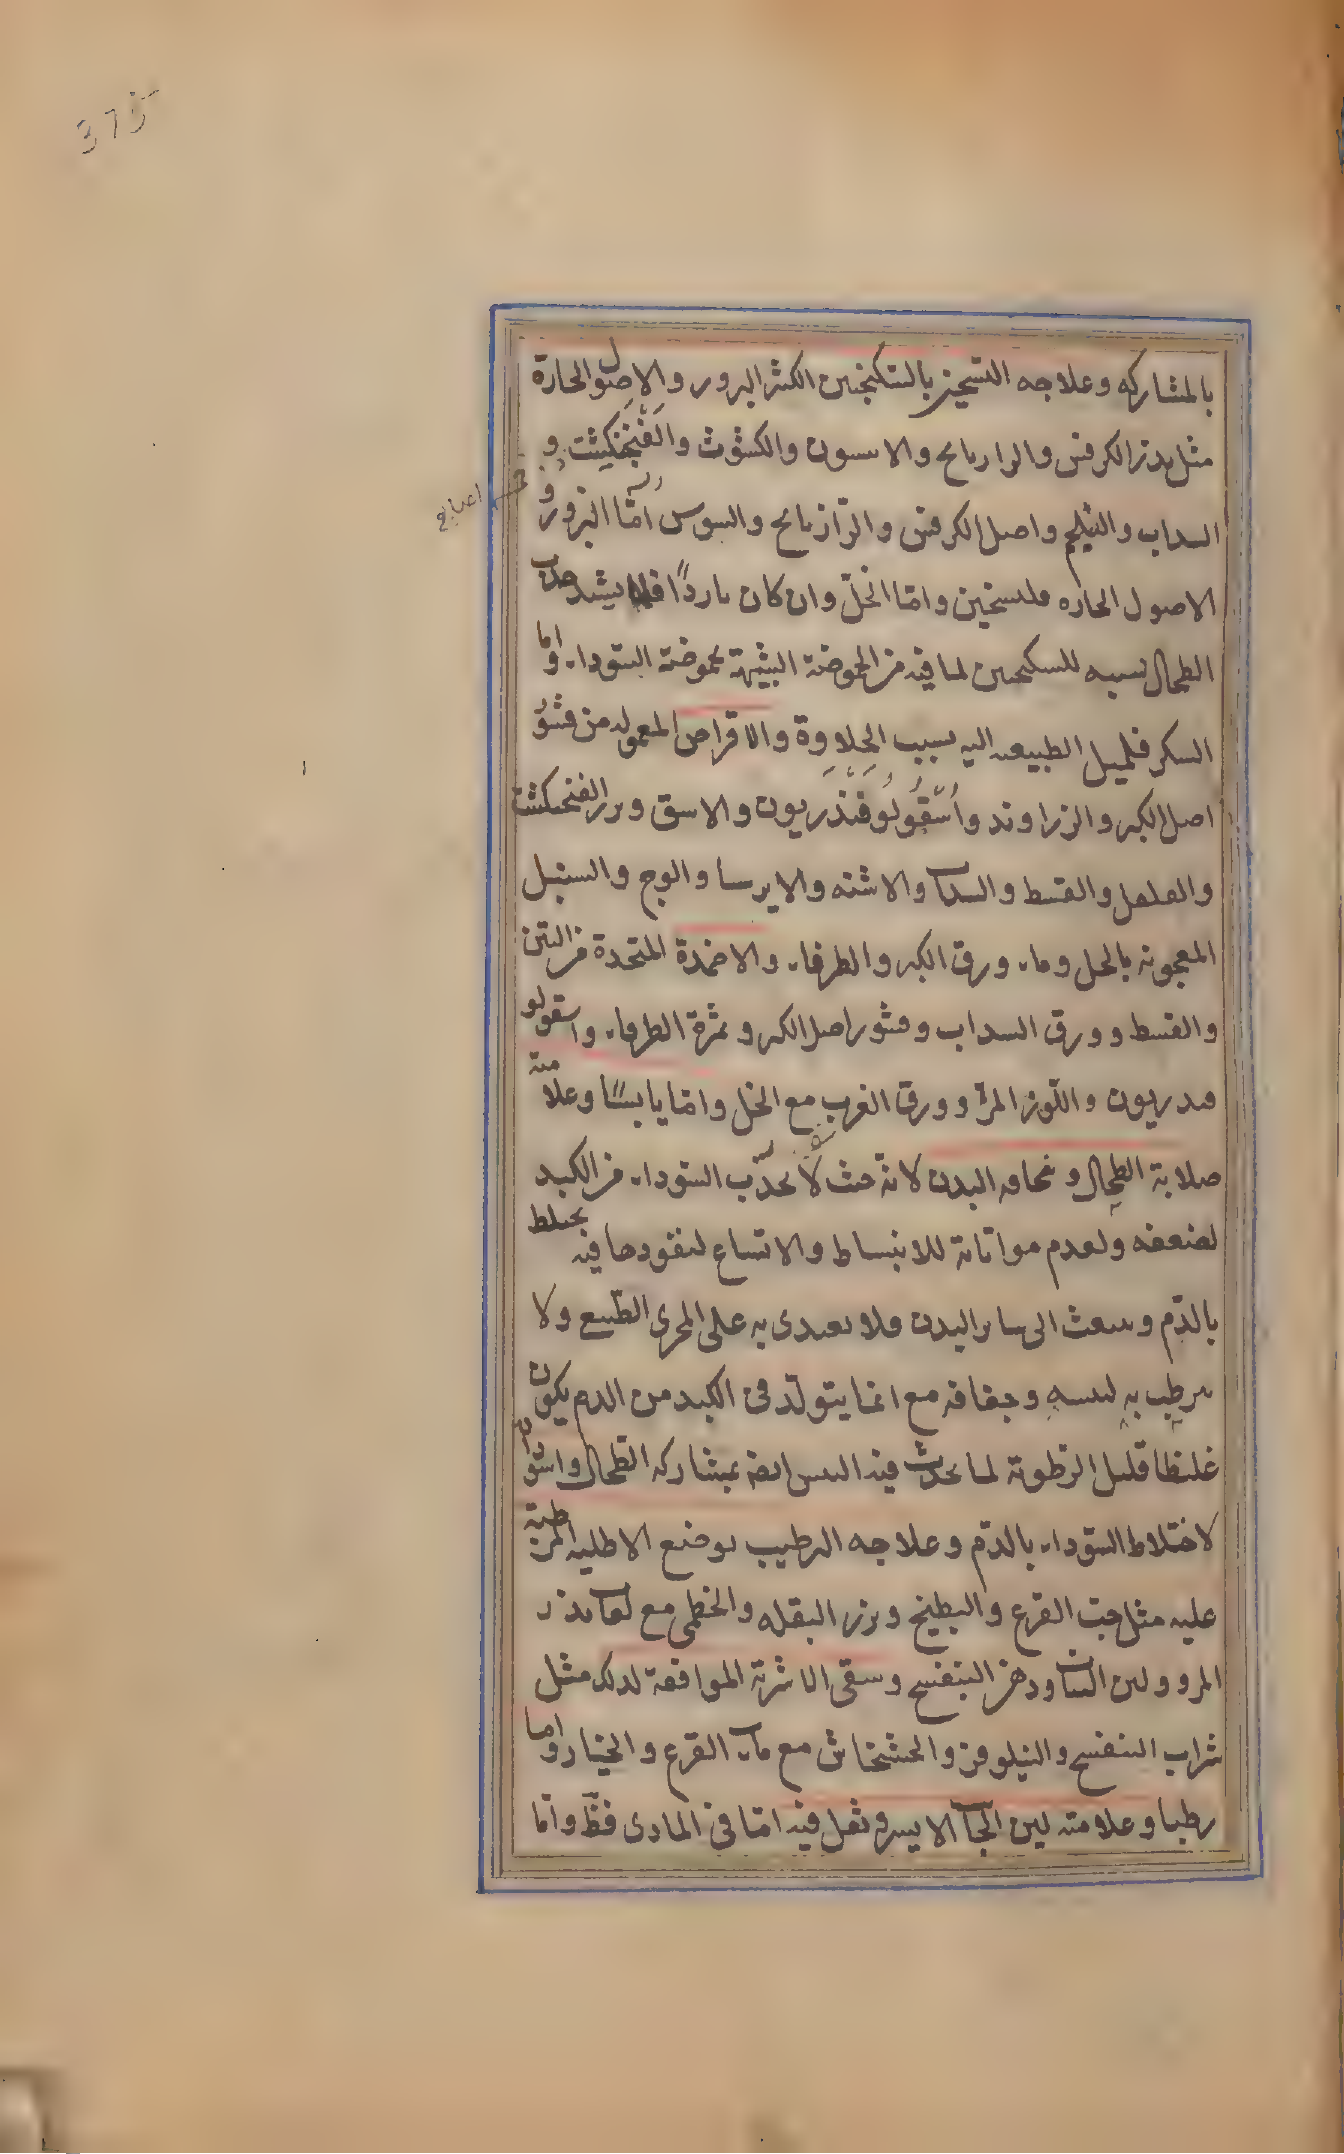 375
بالمشاركه وعلاجه التسخين بالسكنجبين الكثير البزور والاصول الحارة
مثل بزر الكرفس والرازيانج والانيسون والكشوث والفنجنكشت و
خمسه اصابع
السداب والشلجم واصل الكرفس والرازيانج والسوس اما البزور و
الاصول الحاره فللتسخين واما الخل وان كان باردًا فلما يشد جذب
الطحال نسبه للسكنجبين لما فيه من الحموضة الشبيهة بحموضة السوداء واما
السكر فلميل الطبيعه اليه بسبب الحلاوة والاقراص المعموله من قشور
اصل الكبر والزراوند واُسْقُولُوقَنْدَريون والاشق وبزر الفنجنكشت
والفلفل والقسط والسداب والاشنه والايرسا والوج والسنبل
المعجونه بالخل وماء ورق الكبر والطرفاء والاضمدة المتخذة من التين
والقسط وورق السداب وقشور اصل الكبر وثمرة الطرفاء واسقولو
قندريون واللوز المر وورق الغرب مع الخل واما يابسًا وعلامته
صلابة الطحال ونحافه البدن لانه حيث لا يجذب السوداء من الكبد
لضعفه ولعدم مواتاته للانبساط والاتساع لنفودها فيه يختلط
بالدم وينبعث الى ساير البدن فلا يغتدى به على المجرى الطبيع ولا
يرطب به ليبسه وجفافه مع انما يتولد فى الكبد من الدم يكون
غليظا قليل الرطوبة لما يحدث فيه اليبس ايضه بمشاركه الطحال واسوداد
لاختلاط السوداء بالدم وعلاجه الترطيب بوضع الاطليه المرطبة
عليه مثل حب القرع والبطيخ وبزر البقله والخطمى مع لعاب بذر
المرو ولبن النساء ودهن البنفسج وسقى الاشربة الموافقة لدلك مثل
شراب البنفسج والنيلوفر والخشخاش مع ماء القرع والخيار واما
رطبا وعلامته لين الجانب الايسر وثقل فيه اما فى المادى فظ واما